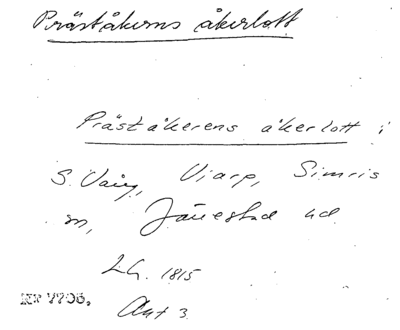 Präståkerns åkerlott
Präståkerens åkerlott i
S. Väng, Viarp, Simris
sn, Järrestad hd
LG. 1815
Akt 3